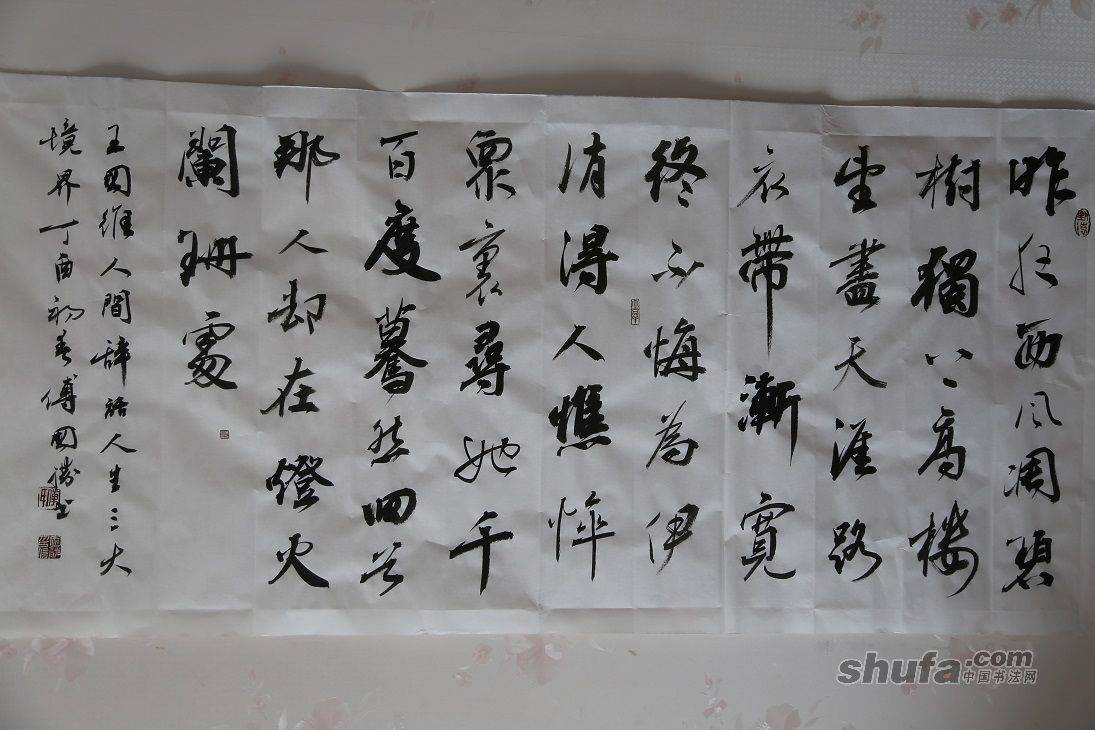 昨夜西风凋碧
樹獨上高楼
望盡天涯路
衣帶漸寬
終不悔為伊
消得人憔悴
衆裏尋她千
百度驀然回首
那人却在燈火
闌珊處
王國維人間辭話人生三大
境界丁酉初春傅國勝书
shufa.com
中国书法网